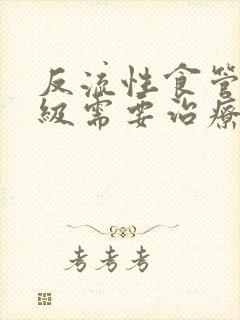 反流性食管
級需要治療
考考考